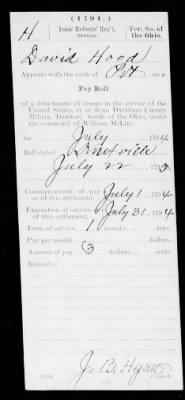 (1794.)
H
Isaac Roberts' Reg't,
Militia.
Ter. So. of
the Ohio.
David Hood
Appears with the rank of Pvt on a
Pay Roll
of a detachment of troops in the service of the
United States, at or from Davidson County
Militia, Territory South of the Ohio, under
the command of
for July, 1794
Roll dated
July 22, 179
Commencement of pay
of this settlement, July 1, 1794
Expiration of service
of this settlement, July 31, 1794
Term of service, 1 months, days.
Pay per month, dollars, cents.
Amount of pay, 3 dollars, cents.
Remarks:
J. B. Hyatt